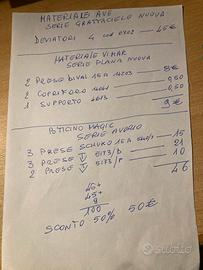 MATERIALE AVE
SERIE GRATTACIELO NUOVA
DEVIATORI 4 cod 0702 — 45€
MATERIALE VIMAR
SERIE PLANA NUOVA
2 PRESE BIVAL 16A 14203 — 8€
2 COPRIFORO 0,50
1 SUPPORTO 14613 — 0,50
9€
BTICINO MAGIC
SERIE AVORIO
3 PRESE SCHUKO 16A — 15
3 PRESE 5173/D — 21
2 PRESE 5173/P — 10
46
46+
45+
9
100
SCONTO 50% 50€
subito